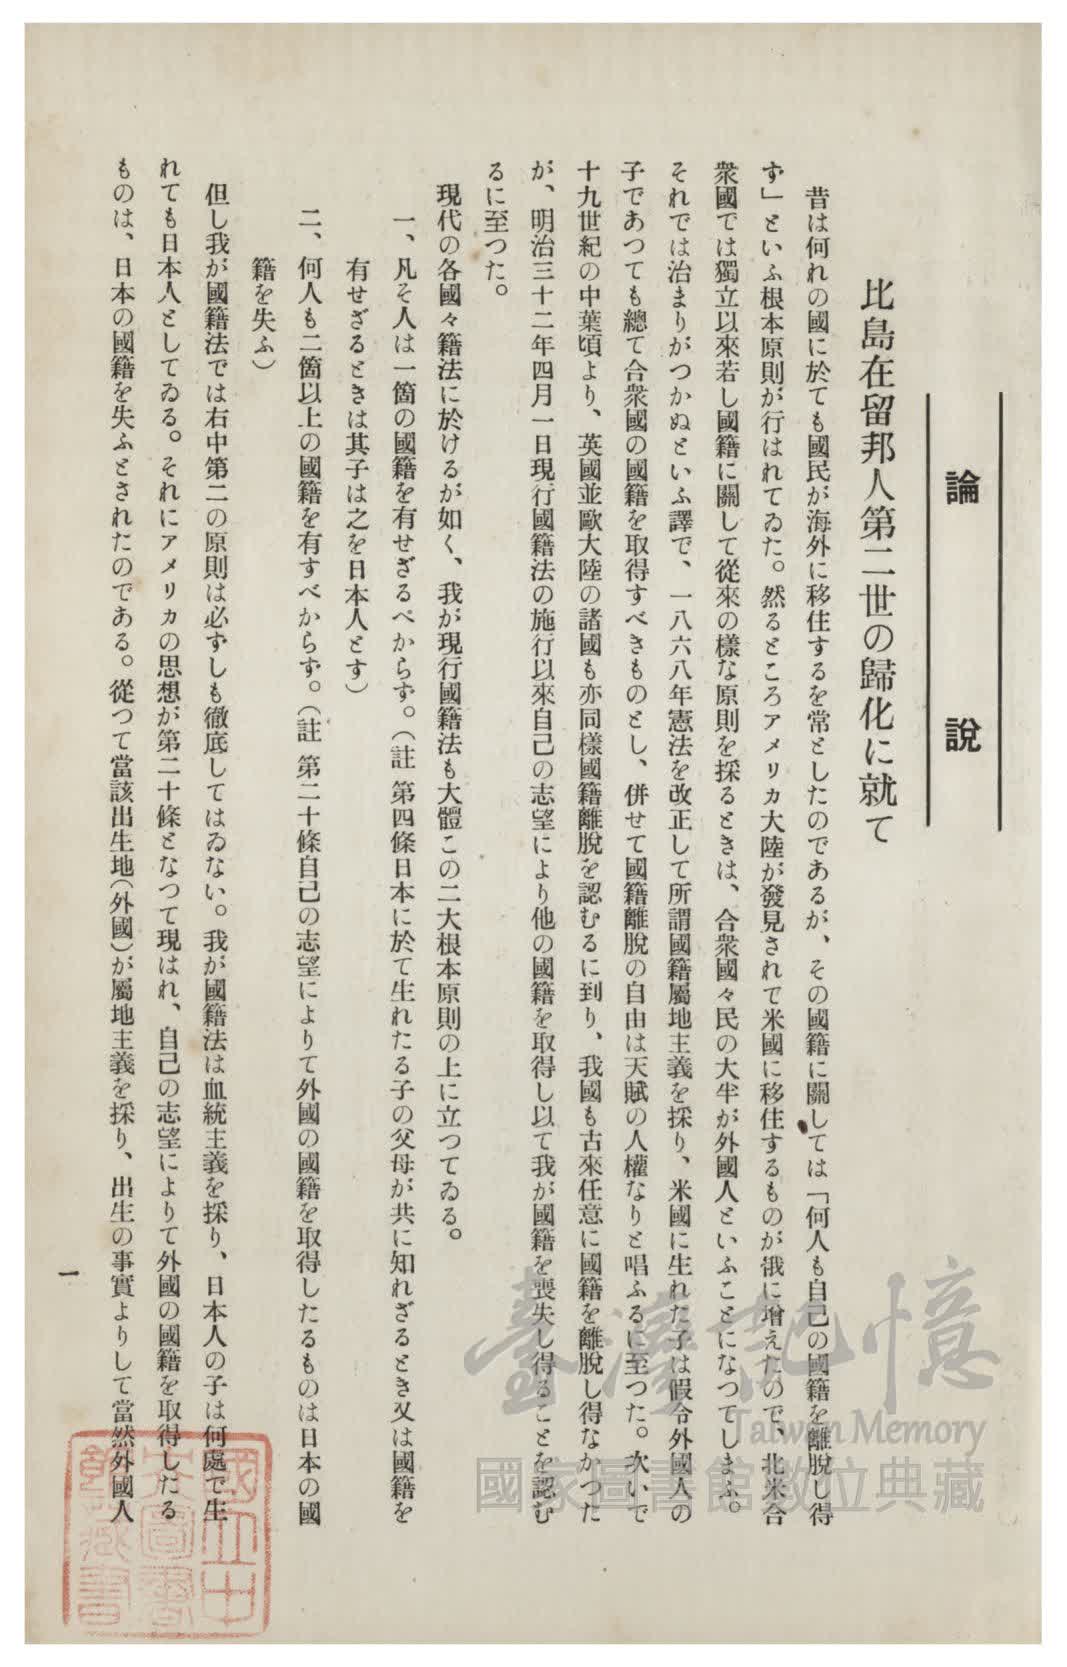 論說
比島在留邦人第二世の歸化に就て
昔は何れの國に於ても國民が海外に移住するを常としたのであるが、その國籍に關しては「何人も自己の國籍を離脫し得
ず」といふ根本原則が行はれてゐた。然るところアメリカ大陸が發見されて米國に移住するものが俄に增えたので、北米合
衆國では獨立以來若し國籍に關して從來の樣な原則を採るときは、合衆國々民の大半が外國人といふことになつてしまふ。
それでは治まりがつかぬといふ譯で、一八六八年憲法を改正して所謂國籍屬地主義を採り、米國に生れた子は假令外國人の
子であつても總て合衆國の國籍を取得すべきものとし、併せて國籍離脫の自由は天賦の人權なりと唱ふるに至つた。次いで
十九世紀の中葉頃より、英國並歐大陸の諸國も亦同樣國籍離脫を認むるに到り、我國も古來任意に國籍を離脫し得なかつた
が、明治三十二年四月一日現行國籍法の施行以來自己の志望により他の國籍を取得し以て我が國籍を喪失し得ることを認む
るに至つた。
現代の各國々籍法に於けるが如く、我が現行國籍法も大體この二大根本原則の上に立つてゐる。
一、凡そ人は一箇の國籍を有せざるべからず。（註 第四條日本に於て生れたる子の父母が共に知れざるとき又は國籍を
有せざるときは其子は之を日本人とす）
二、何人も二箇以上の國籍を有すべからず。（註 第二十條自己の志望によりて外國の國籍を取得したるものは日本の國
籍を失ふ）
但し我が國籍法では右中第二の原則は必ずしも徹底してはゐない。我が國籍法は血統主義を採り、日本人の子は何處で生
れても日本人としてゐる。それにアメリカの思想が第二十條となつて現はれ、自己の志望によりて外國の國籍を取得したる
ものは、日本の國籍を失ふとされたのである。從つて當該出生地（外國）が屬地主義を採り、出生の事實よりして當然外國人
一
臺灣記憶
Taiwan Memory
國家圖書館數位典藏
國立中
央圖書
館藏書